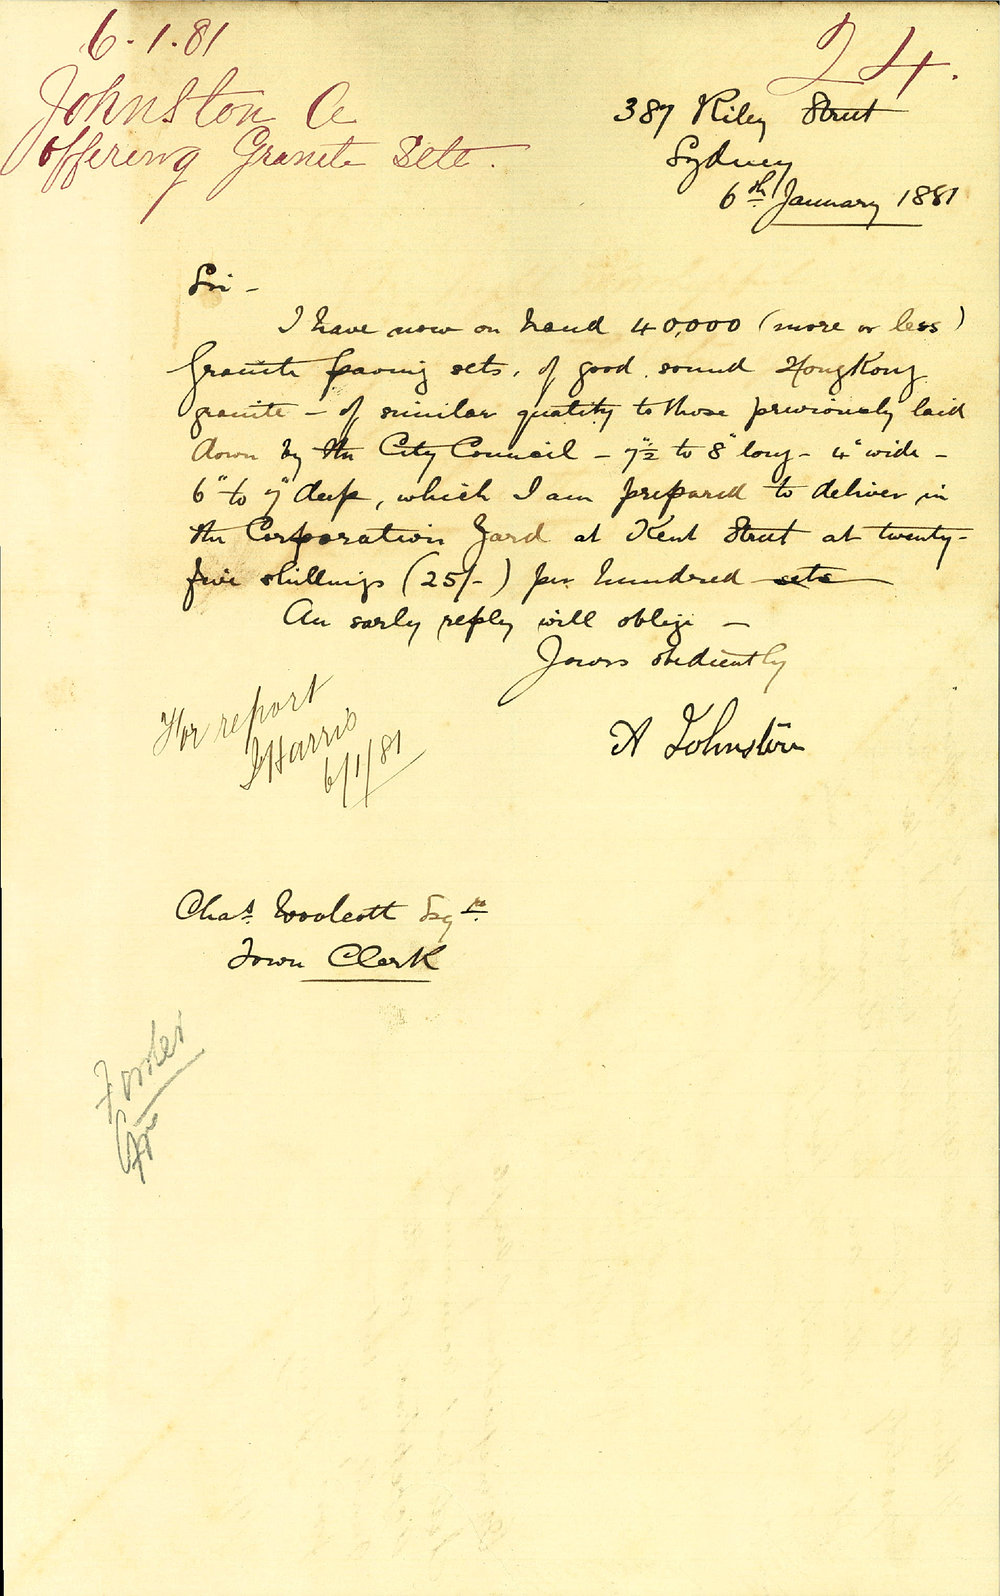 6.1.81
Johnston A
Offering Granite Sets.
24.
387 Riley Street
Sydney
6th January 1881
Sir -
I have now on hand 40,000 (more or less)
Granite paving sets, of good sound HongKong
granite - of similar quality to those previously laid
down by the City Council - 7"½ to 8" long - 4" wide -
6" to 7" deep, which I am prepared to deliver in
the Corporation Yard at Kent Street at twenty-
five shillings (25/-) per hundred sets
An early reply will oblige -
Yours obediently
A Johnston
For report
Harris
6/1/81
Chas. Woolcott Esqre
Town Clerk